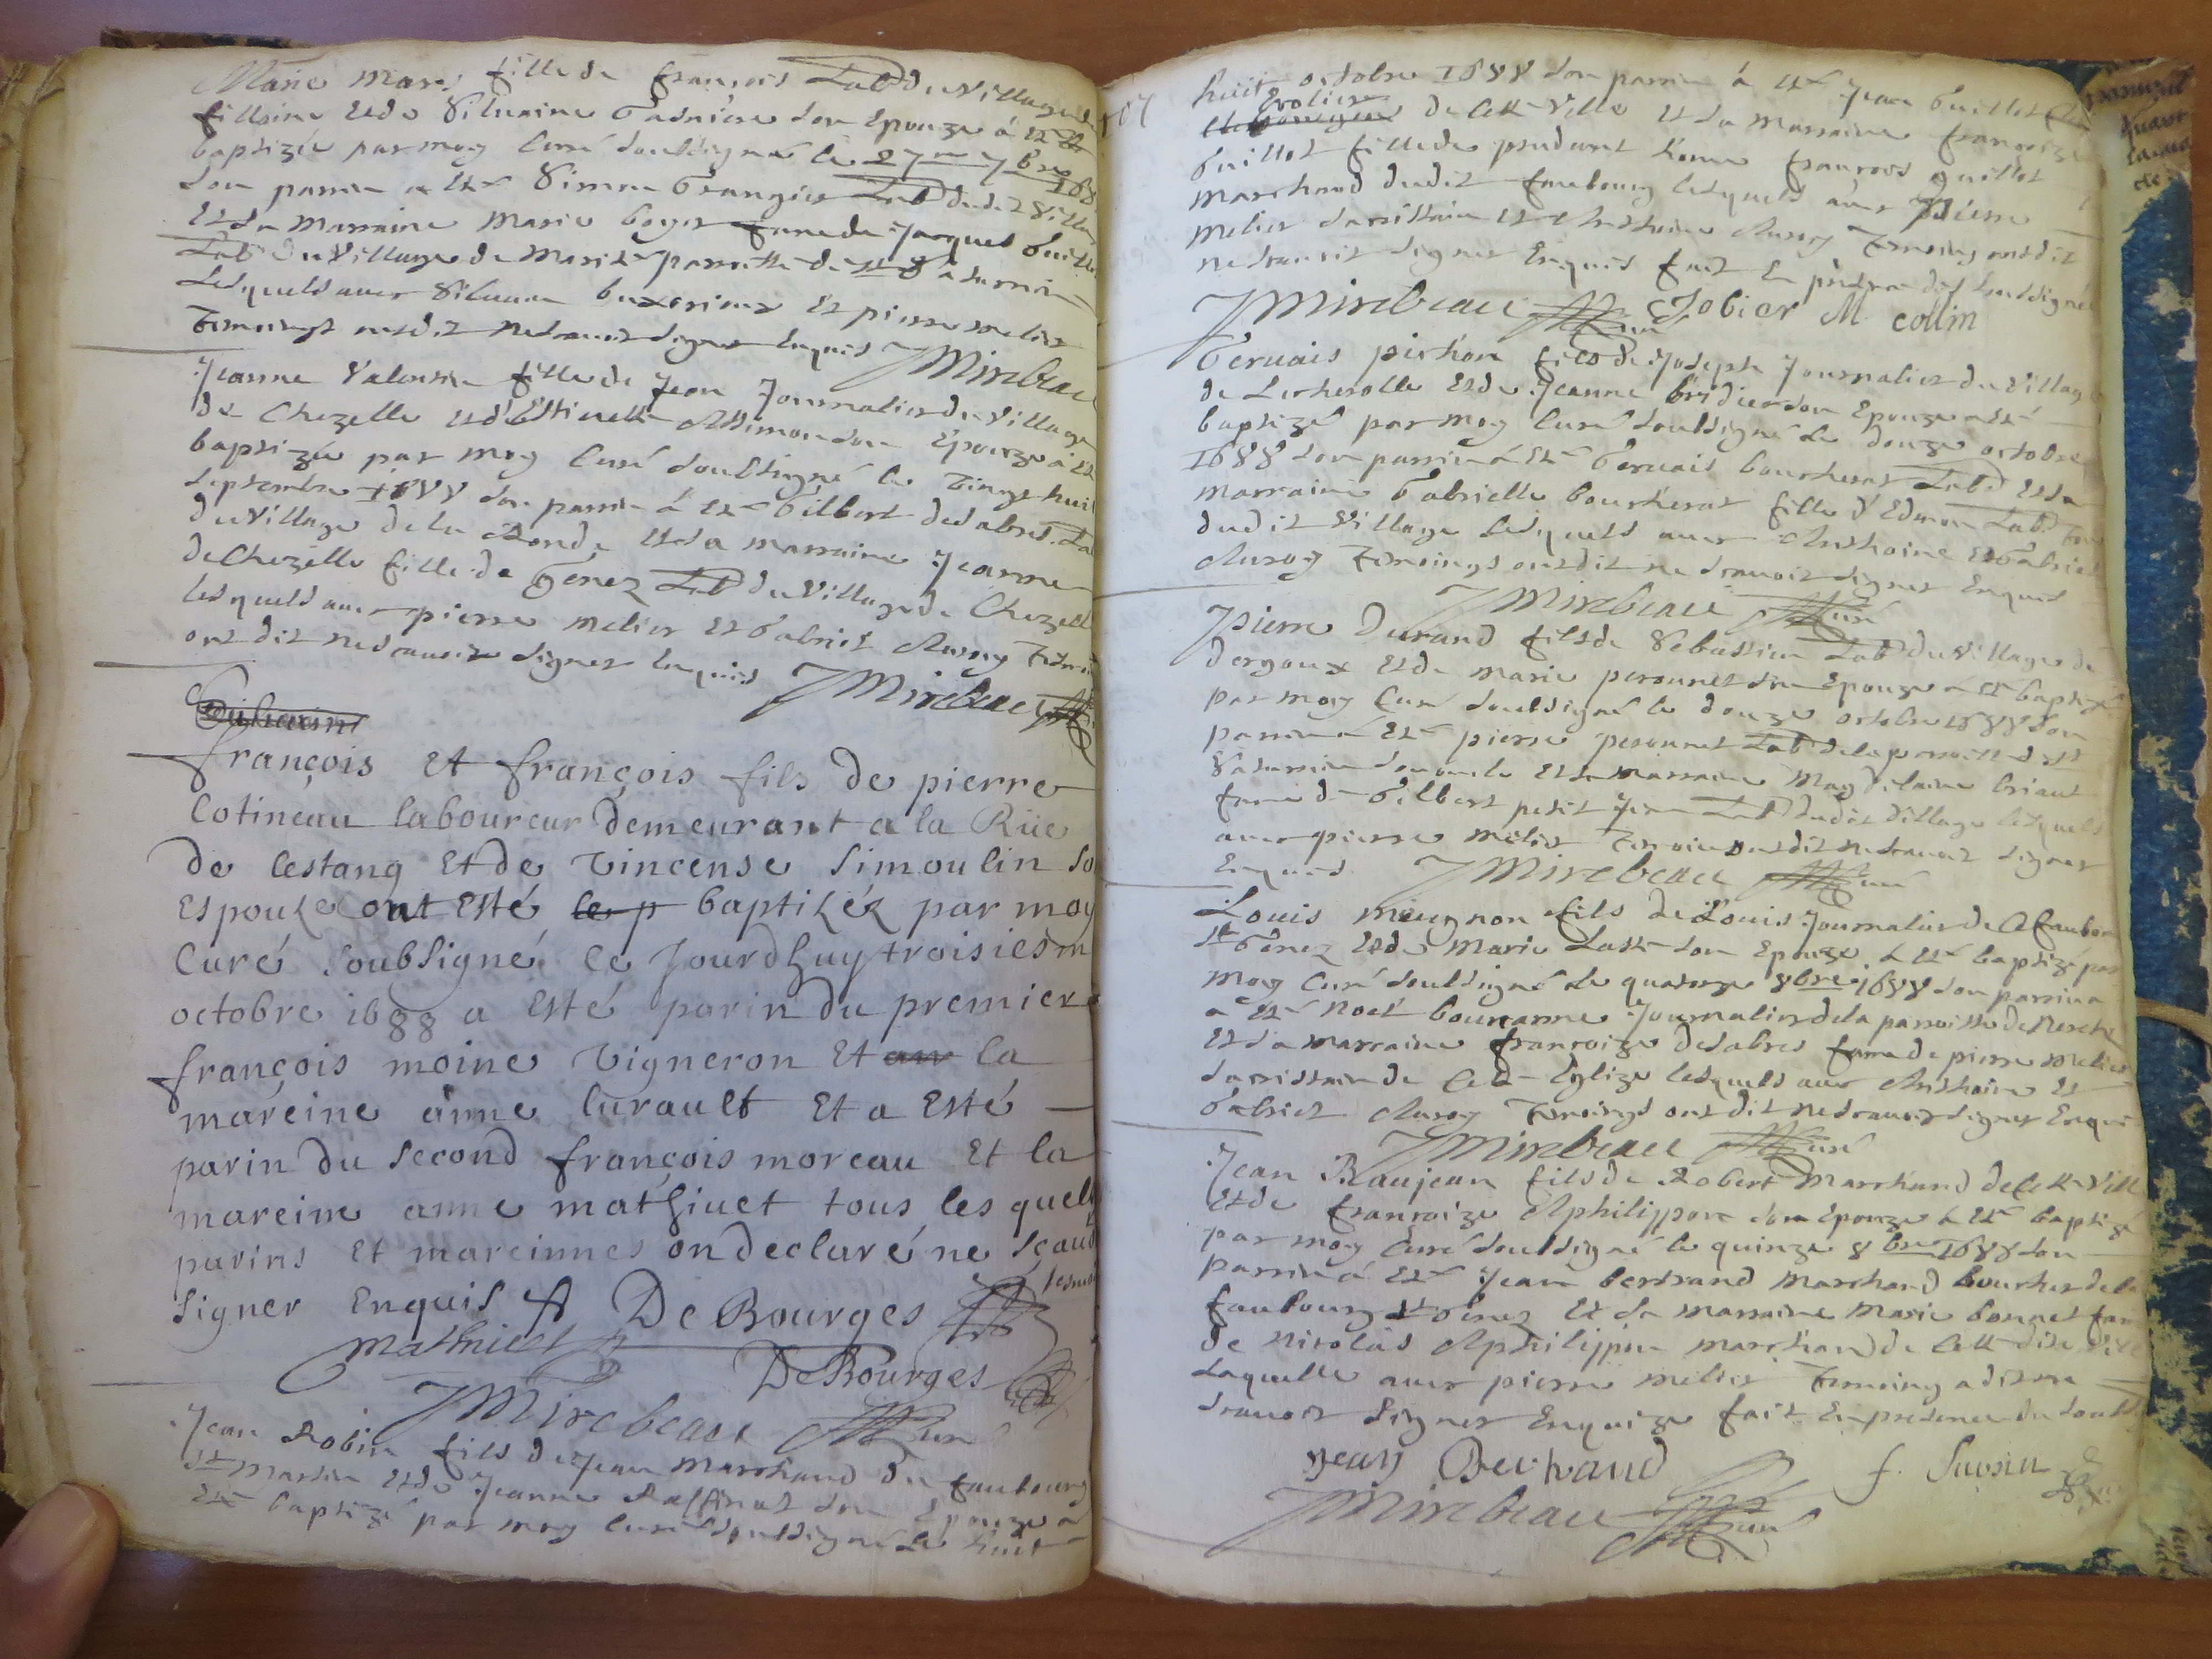 Marie mars fille de françois Lab du village de
fillaine et de Silvaine son Epouze a esté
baptizée par moy Curé soubsigné le 27me 7bre 168
son parrin a esté Simon Grangier Lab dudit Village
Et sa marraine Marie boyer fame de Jacques
Lab du Village de parroisse de st Saturnin
Lesquels avec Silvain Et pierre melier
Temoings ont dit ne scavoir signer Enquis JMirebeau
Jeanne Valentin fille de Jean Journalier du Village
de Chezelle et d'Estinette son Epouze a esté
baptizée par moy Curé soubsigné le vingt huit
septembre 1688 son parrin a esté Gilbert desabres Lab
du Village de la Ronde Et sa marraine Jeanne
de Chezelle fille de Genez Lab du Village de Chezelle
lesquels avec pierre melier Et Gabriel Auroy Temoin
ont dit ne scavoir signer Enquis JMirebeau
françois et françois fils de pierre
Cotineau laboureur demeurant a la Rüe
de lestang Et de Vincense Simoulin so
Espouze ont Esté le p baptizéz par moy
Curé soubsigné ce Jourdhuy troisiesm
octobre 1688 a esté parin du premier
françois moine Vigneron Et au la
mareine anne lurault Et a Esté
parin du second françois moreau Et la
mareine anne mathivet tous les quels
parins Et mareinnes on declaré ne sçau
signer Enquis De Bourges
mathivet
DeBourges
JMirebeau Curé
Jean Robin fils de Jean Marchand du faubourg
st Martin et de Jeanne Raffinat son Epouze a
esté baptizé par moy Curé soubsigné le huit
huit octobre 1688 son parrin a esté Jean Guillot
de cette Ville et sa marraine françoize
Guillot fille de prudent home françois Guillot
marchand dudit faubourg lesquels avec pierre
melier sacristain et Anthoine Auroy Temoings ont dit
ne scavoir signer Enquis fait En presence des soubsignés
JMirebeau Curé Jobier M. collin
Gervais pichon fils de Joseph Journalier du Village
de Lecherolle Et de Jeanne bridier son Epouze a esté
baptizé par moy Curé soubsigné le douze octobre
1688 son parrin a esté Gervais bourcherat Lab Et sa
marraine Gabrielle bourcherat fille d'Edmon Lab
dudit Village lesquels avec Anthoine Et Gabriel
Auroy Temoings ont dit ne scavoir signer Enquis
JMirebeau Curé
Pierre Durand fils de Sebastien Lab du Village de
dergoux Et de marie peronnet son Epouze a esté baptizé
par moy Curé soubsigné le douze octobre 1688 son
parrin a esté pierre peronnet Lab de la parroisse de st
Saturnin Et sa marraine Magdelaine briaut
fame de Gilbert petit Jean Lab dudit Village lesquels
avec pierre melier Temoin ont dit ne scavoir signer
Enquis JMirebeau Curé
Louis mignon fils de Louis Journalier de ce faubour
st Genez Et de Marie Lasse son Epouze a esté baptizé par
moy Curé soubsigné le quatorze 8bre 1688 son parrin a
a esté Noel bourianne Journalier de la parroisse de
Et sa marraine françoize desabres fame de pierre melier
sacristain de cette Eglize lesquels avec Anthoine Et
Gabriel Auroy Temoings ont dit ne scavoir signer Enquis
JMirebeau Curé
Jean Beaujean fils de Robert Marchand de cette Ville
Et de françoize Aphilippon son Epouze a esté baptizé
par moy Curé soubsigné le quinze 8bre 1688 son
parrin a esté Jean bertrand Marchand boucher de la
faubourg st Genez Et sa marraine Marie bonnet fam
de Nicolas Aphilippon marchand de cette dite Ville
Laquelle avec pierre melier Temoing a dit ne
scavoir signer Enquize fait En presence du soubs
Jean Bertrand
JMirebeau Curé